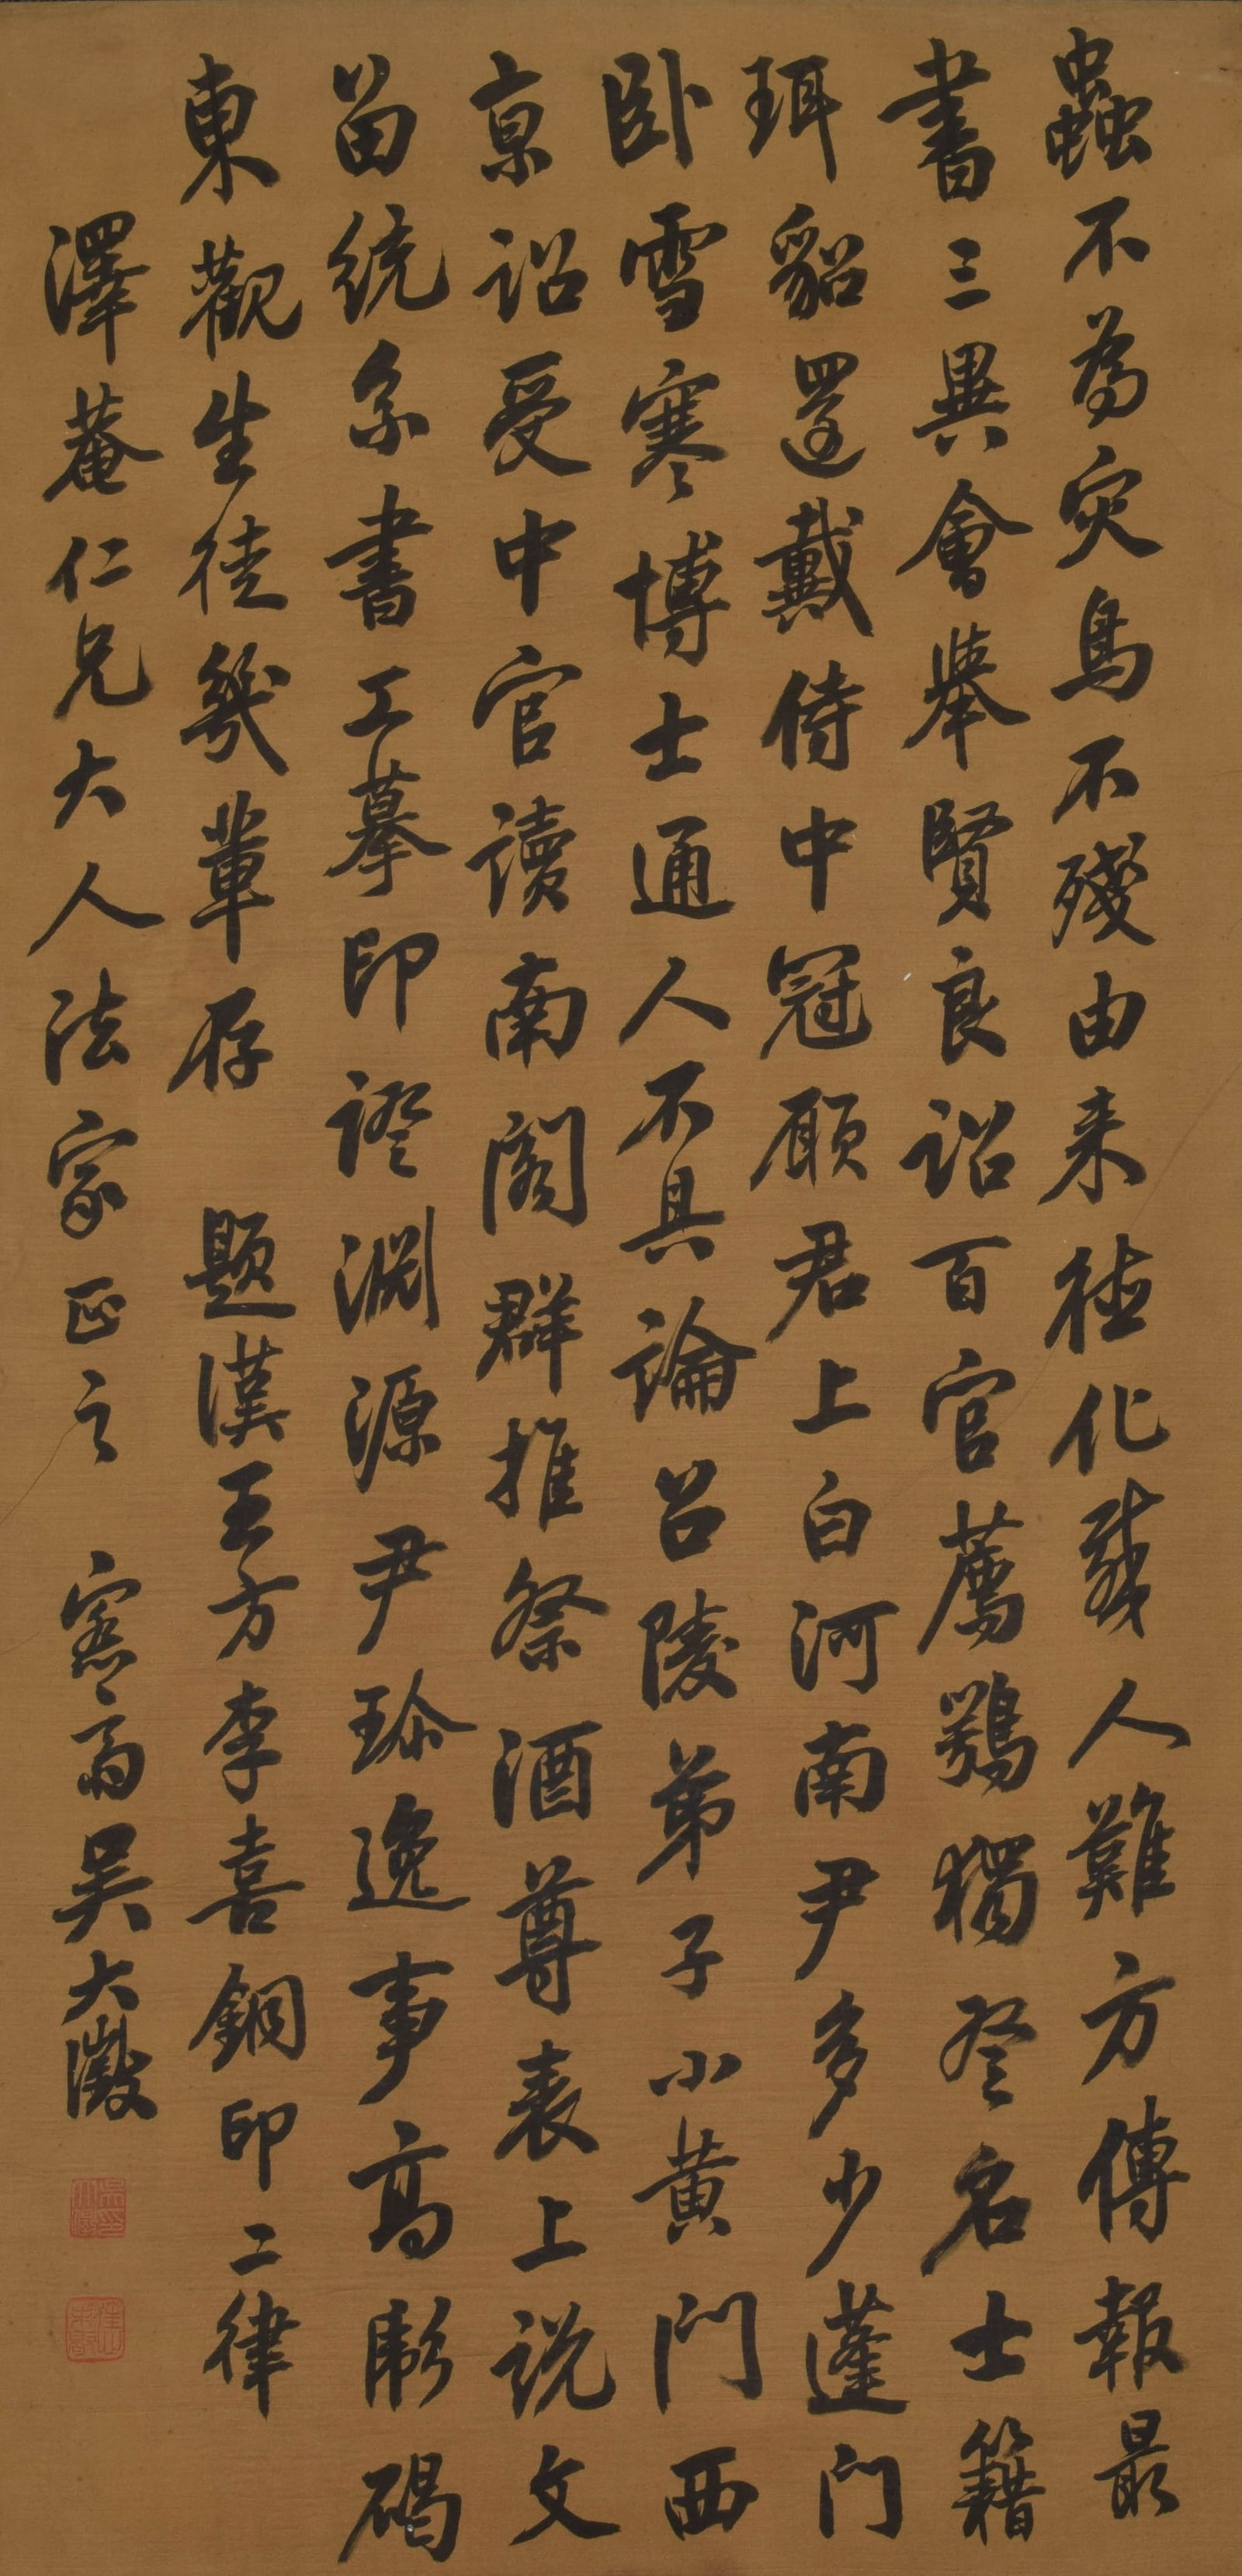 蟲不為灾鳥不殘由来德化感人難方傳報最
書三異會舉賢良詔百官薦鶚獨登名士籍
珥貂還戴侍中冠願君上白河南尹多少蓬門
卧雪寒博士通人不具論召陵弟子小黃門西
京詔受中官讀南閣群推祭酒尊表上說文
留統系書工摹印證淵源尹珍逸事高彪碣
東觀生徒幾輩存 題漢王方李喜銅印二律
澤菴仁兄大人法家正之 窓齋吳大澂